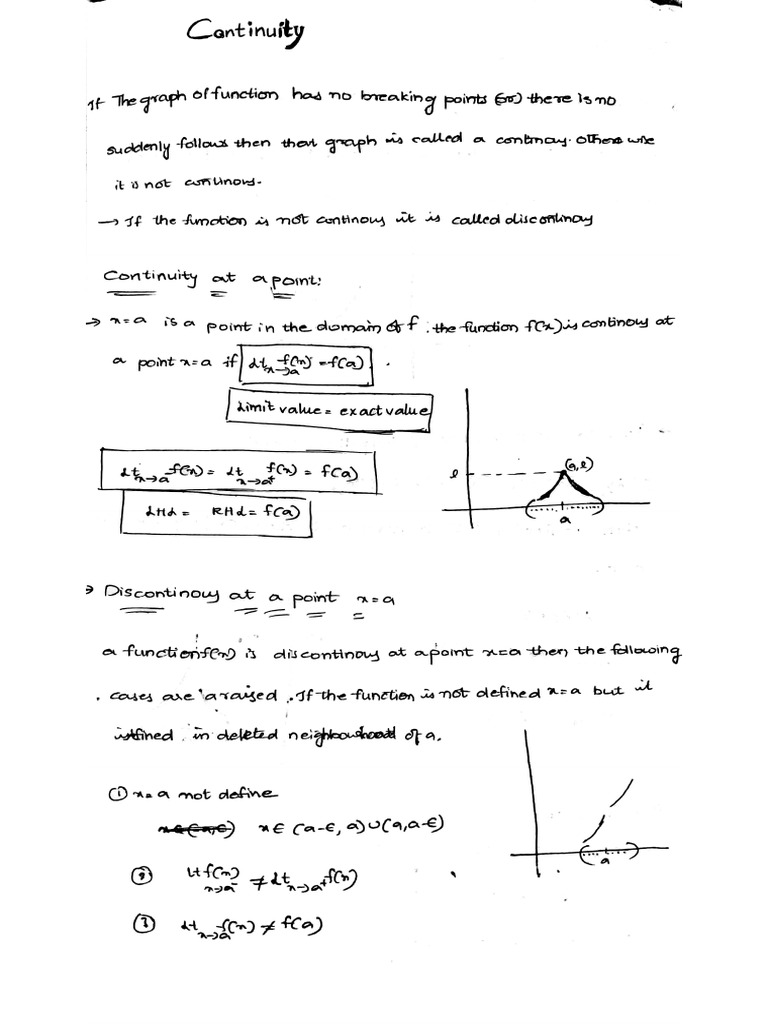 Continuity
If The graph of function has no breaking points (or) there is no
suddenly follows then that graph is called a continoy. otherewise
it is not continoys.
→ If the function is not continoy it is called discontinoy
Continuity at a point:
→ x=a is a point in the domain of f. the function f(x) is continoy at
a point x=a if Lt x→a f(x) = f(a).
Limit value = exact value
Lt x→a⁻ f(x) = Lt x→a⁺ f(x) = f(a)
LHL = RHL = f(a)
l (a,l)
a
→ Discontinoy at a point x=a
a function f(x) is discontinoy at a point x=a then, the following
cases are araised. If the function is not defined x=a but it
in deleted neighbourhood of a.
① x=a not define
x∈(a-∈, a)∪(a, a-∈)
a
② Lt x→a⁻ f(x) ≠ Lt x→a⁺ f(x)
③ Lt x→a f(x) ≠ f(a)